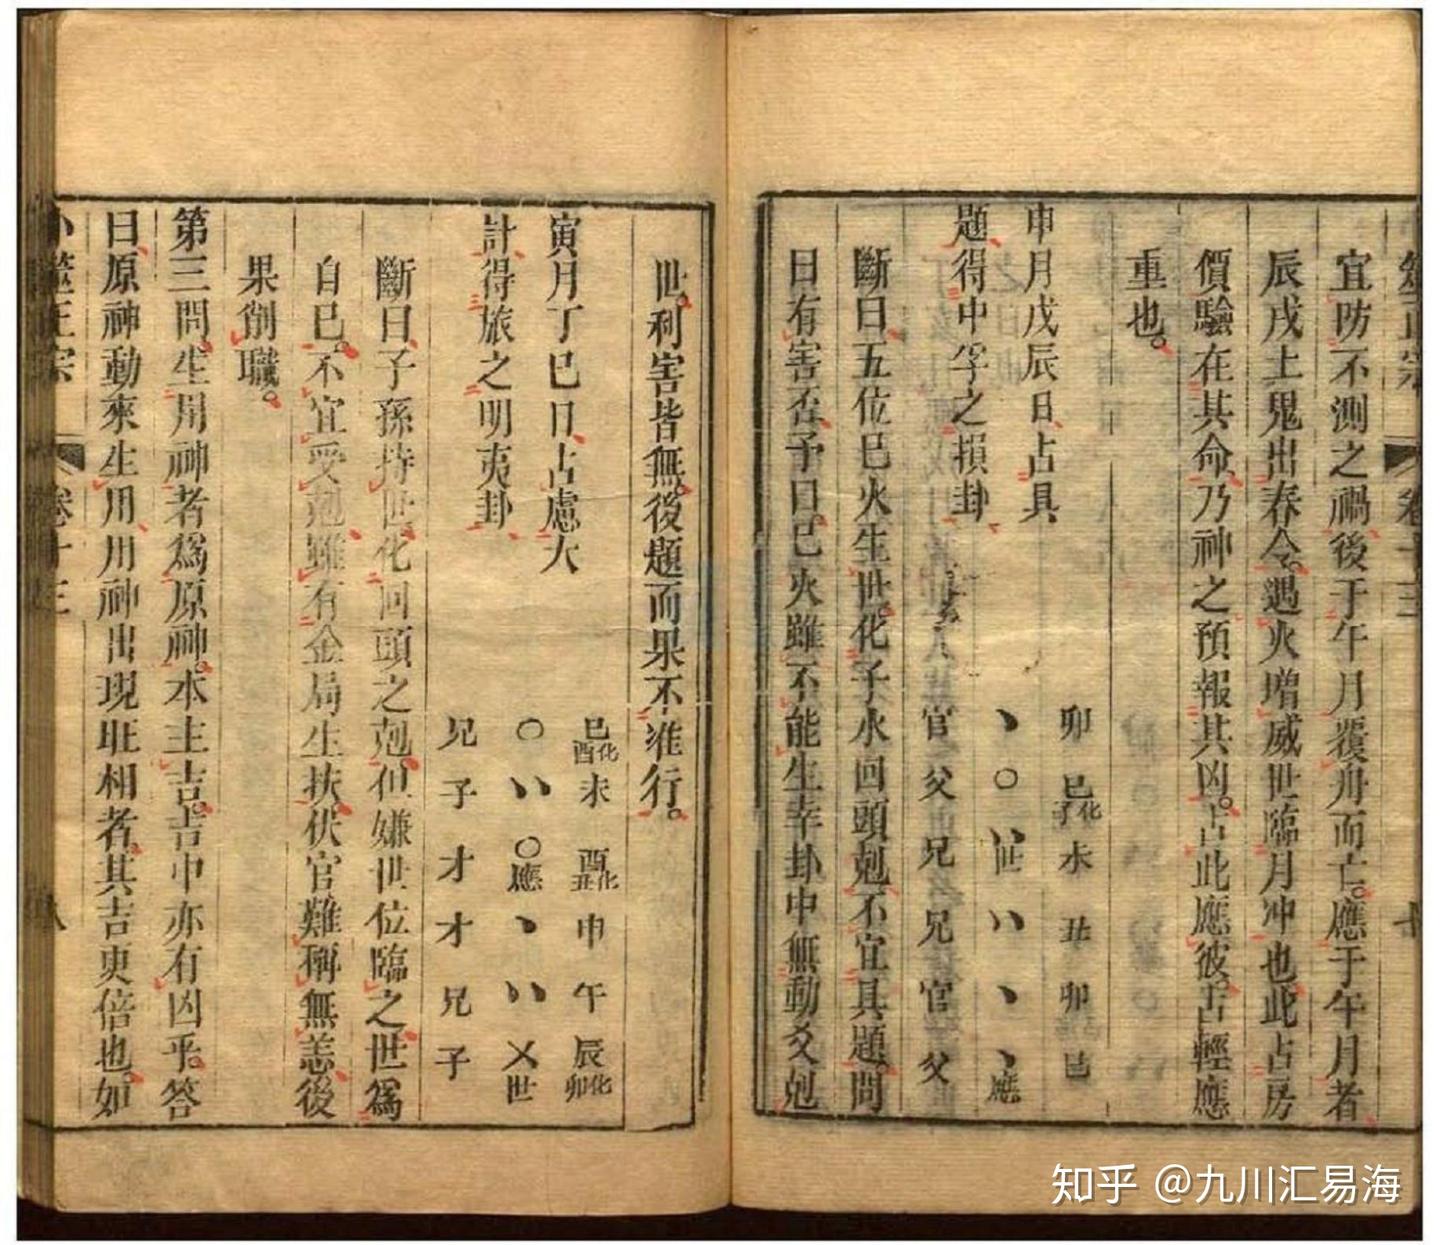 筮正宗 卷十三
宜防不測之禍後于午月覆舟而亡應于午月者
辰戌土鬼出春令遇火增威世臨月冲也此占房
價驗在其命乃神之預報其凶占此應彼占輕應
重也
申月戊辰日占具
題得中孚之損卦
卯 巳化子 未 丑 卯 巳
、 〇 〃世 〃 、 、應
官 父 兄 兄 官 父
斷曰五位巳火生世化子水回頭尅不宜具題問
曰有害否予曰巳火雖不能生幸卦中無動爻尅
世利害皆無後題而果不准行
寅月丁巳日占慮大
計得旅之明夷卦
巳化酉 未 酉化丑 申 午 辰化卯
〇 〃 〇應 、 〃 乂世
兄 子 才 才 兄 子
斷曰子孫持世化回頭之尅但嫌世位臨之世爲
自己不宜受尅雖有金局生扶伏官難稱無恙後
果削職
第三問生用神者爲原神本主吉吉中亦有凶乎答
曰原神動來生用用神出現旺相者其吉更倍也如
卜筮正宗 卷十三 八
知乎 @九川汇易海